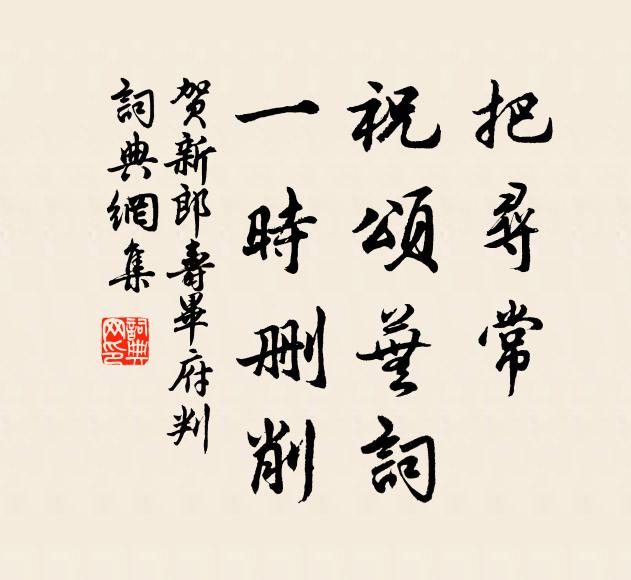 把尋常
祝頌蕪詞
一時删削
贺新郎壽畢府判
詞典網集
詞典
网印